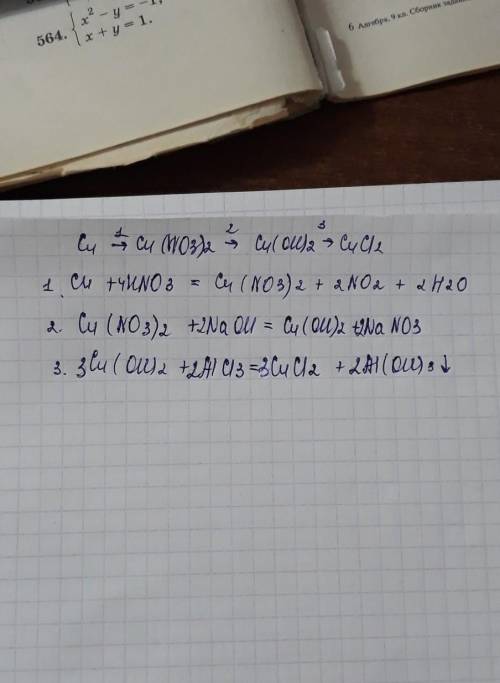 564. { x² − y = −1,
x + y = 1.
6 Алгебра, 9 кл. Сборник
Cu 1→ Cu(NO3)2 2→ Cu(OH)2 3→ CuCl2
1. Cu + 4HNO3 = Cu(NO3)2 + 2NO2 + 2H2O
2. Cu(NO3)2 + 2NaOH = Cu(OH)2 + 2NaNO3
3. 3Cu(OH)2 + 2AlCl3 = 3CuCl2 + 2Al(OH)3↓